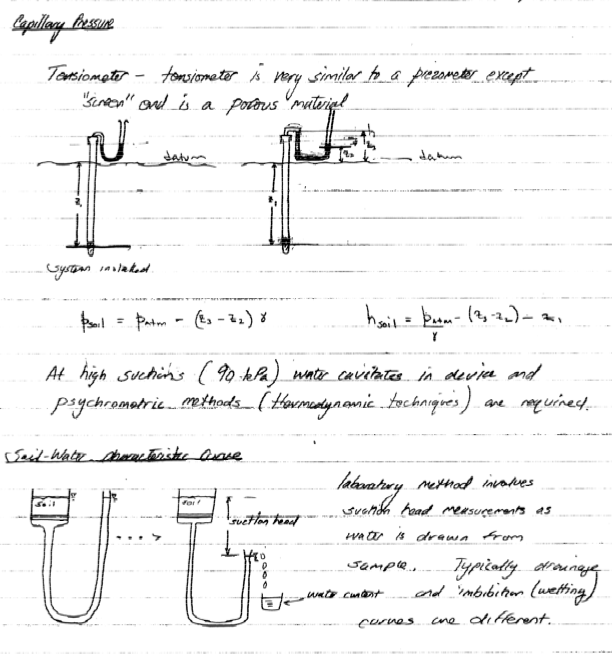 Capillary Pressure
Tensiometer - tensiometer is very similar to a piezometer except
"screen" end is a porous material
datum
z₃
z₂
datum
z₁
z₁
system isolated
p_soil = p_atm - (z₃ - z₂) γ
h_soil = p_atm/γ - (z₃ - z₂) - z₁
At high suctions (90 kPa) water cavitates in device and
psychrometric methods (thermodynamic techniques) are required.
Soil-Water Characteristic Curve
soil
soil
suction head
water content
laboratory method involves
suction head measurements as
water is drawn from
sample. Typically drainage
and imbibition (wetting)
curves are different.